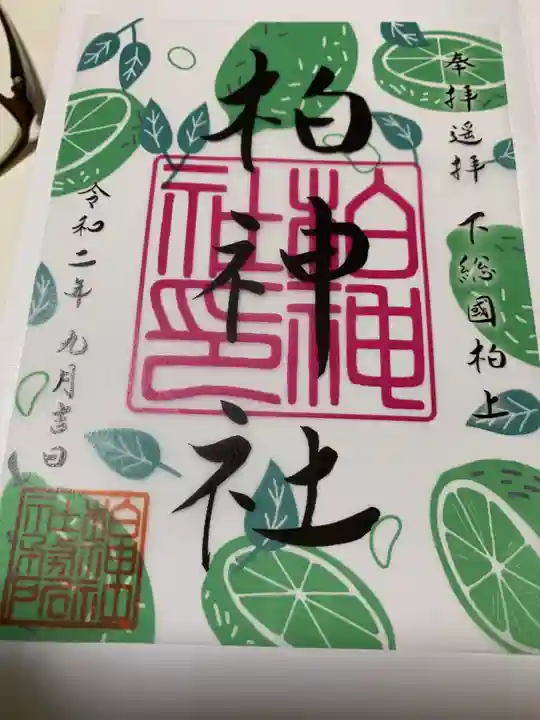 奉拝遥拝 下総國柏上
柏神社
柏神社印
令和二年 九月吉日
柏神社社務所